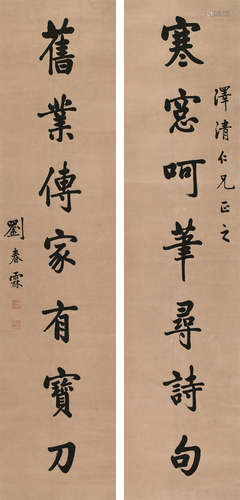 澤清仁兄正之
寒窓呵筆尋詩句
舊業傳家有寶刀
劉春霖